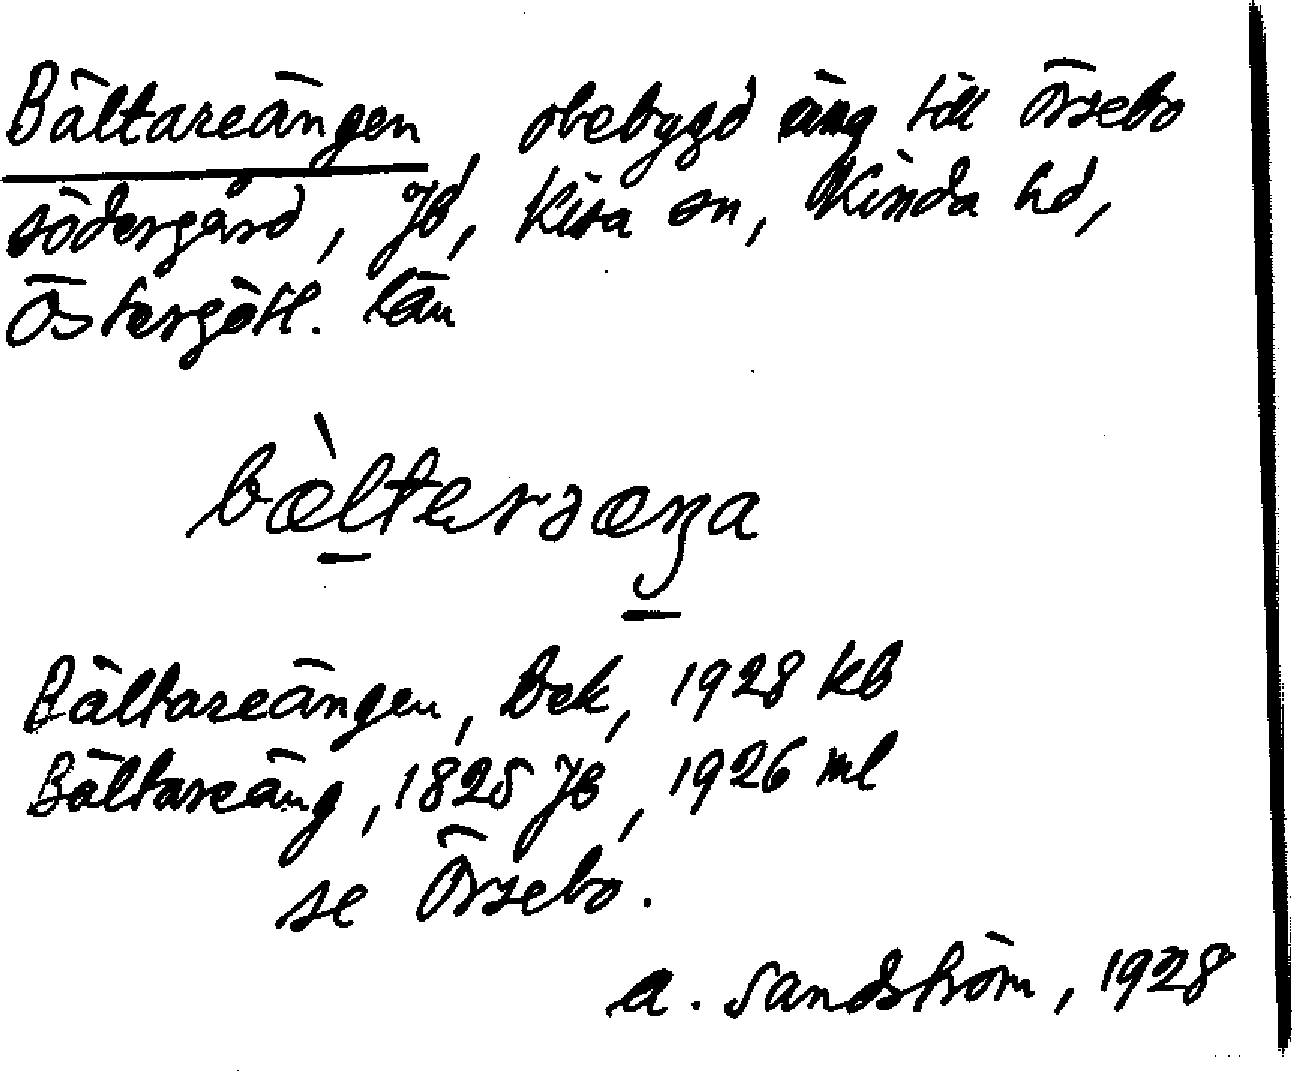 Bältareängen, obebygd äng till Örsebo
södergård, Jb, Kisa sn, Kinda hd,
Östergötl. län
bæ̀ltersæŋa
Bältareängen, Bek, 1928 kb
Bältareäng, 1825 Jb, 1926 ml
se Örsebo.
A. Sandström, 1928